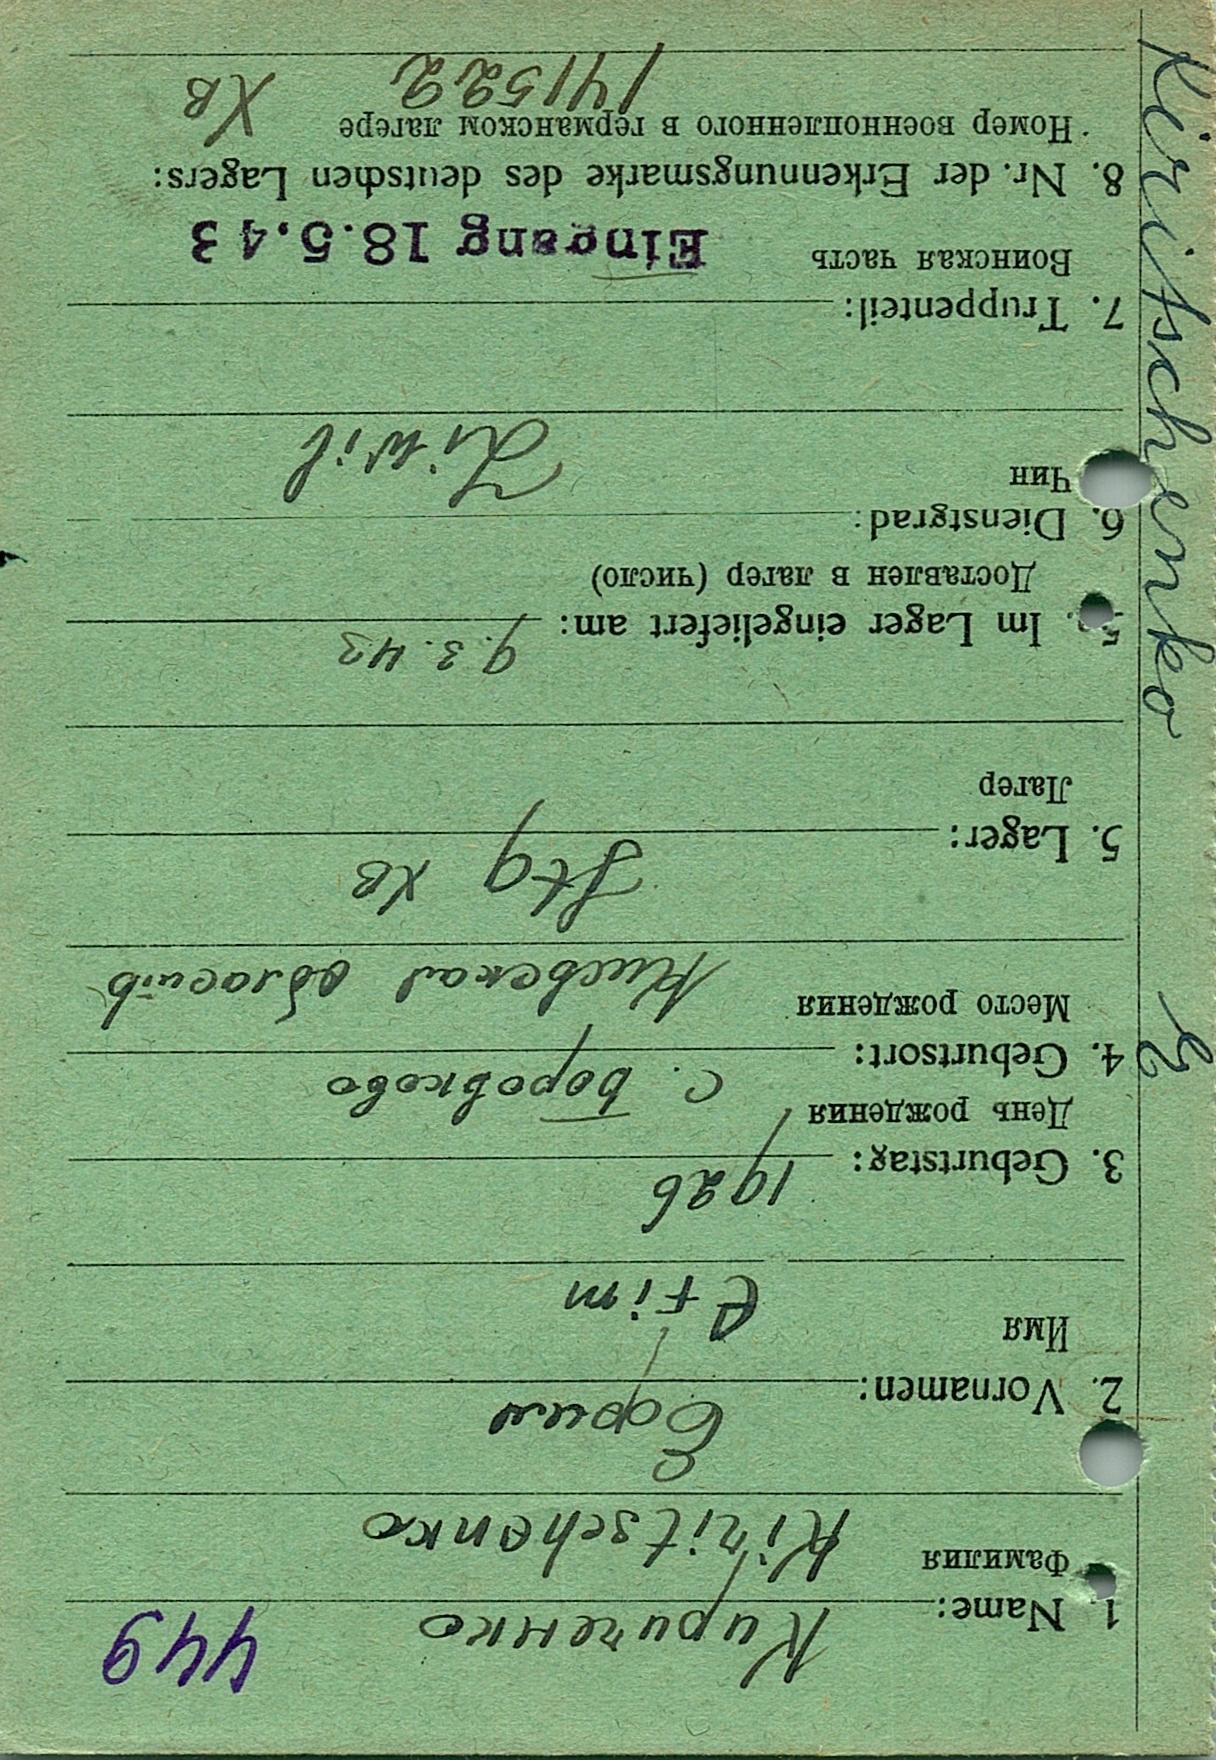 449
1. Name: Кириченко
Фамилия Kiritschenko
Ефим
2. Vornamen:
Имя Efim
1926
3. Geburtstag:
День рождения
с. Боровково
4. Geburtsort:
Место рождения Киевская область
Stg XB
5. Lager:
Лагер
9.3.43
5a. Im Lager eingeliefert am:
Доставлен в лагер (число)
6. Dienstgrad:
Чин Ziwil
7. Truppenteil:
Воинская часть Eingang 18.5.43
8. Nr. der Erkennungsmarke des deutschen Lagers:
Номер военнопленного в германском лагере
141522 XB
Kiritschenko E